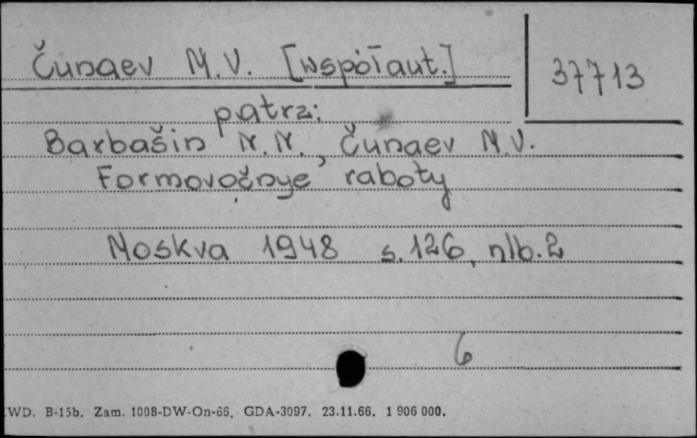 Čunaev M.V. [współaut.]
37713
patrz:
Barbašin N.N., Čunaev M.V.
Formovočnye raboty
Moskva 1948 s.126, nlb.2
6
WD. B-15b. Zam. 1008-DW-On-66. GDA-3097. 23.11.66. 1 906 000.